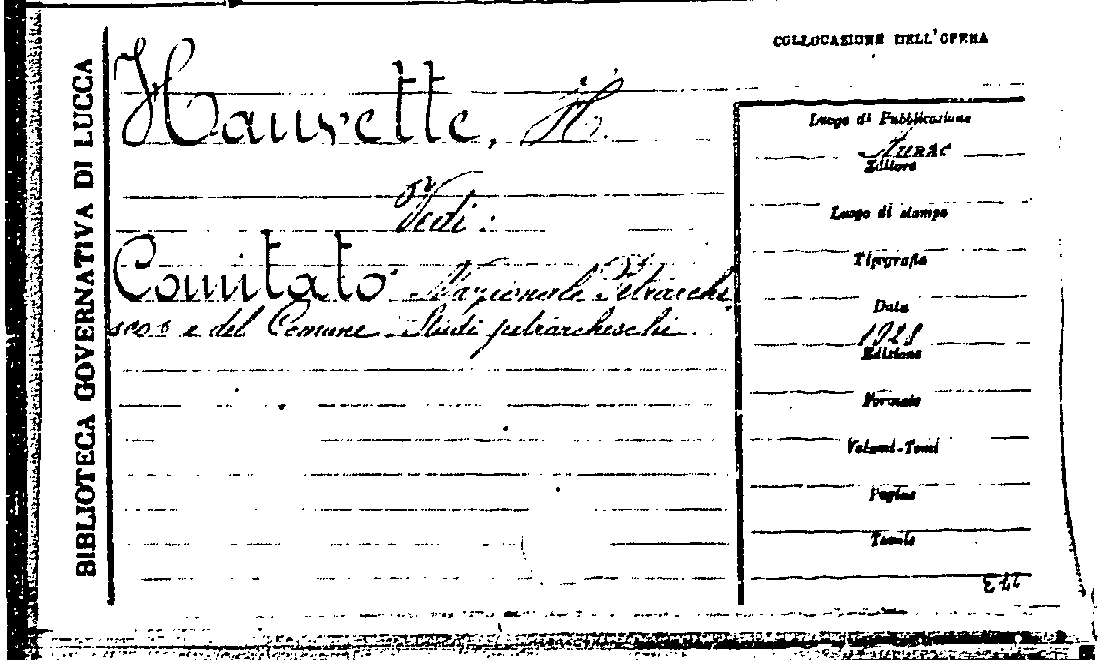 BIBLIOTECA GOVERNATIVA DI LUCCA
COLLOCAZIONE DELL'OPERA
Hauvette, H.
Vedi:
Comitato Nazionale Petrarche
sco e del Comune Studi petrarcheschi
Luogo di Pubblicazione
Editore
Luogo di stampa
Tipografia
Data
1928
Edizione
Formato
Volumi-Tomi
Pagine
Tavole